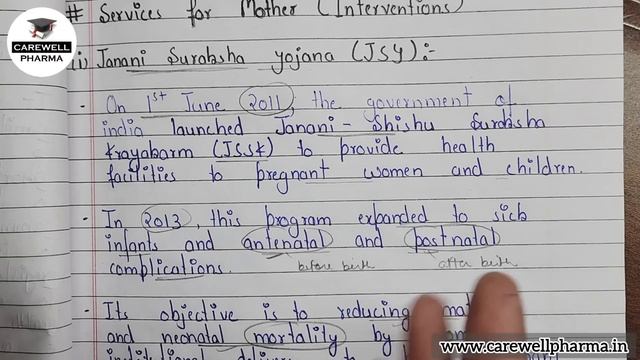 # Services for Mother (Interventions)
CAREWELL
PHARMA
(i) Janani Suraksha yojana (JSY):-
- On 1st June 2011, the government of
india launched Janani-Shishu Suraksha
Krayakarm (JSSK) to provide health
facilities to pregnant women and children.
- In 2013, this program expanded to sick
infants and antenatal and postnatal
before birth after birth
complications.
- Its objective is to reducing
and neonatal mortality by
www.carewellpharma.in